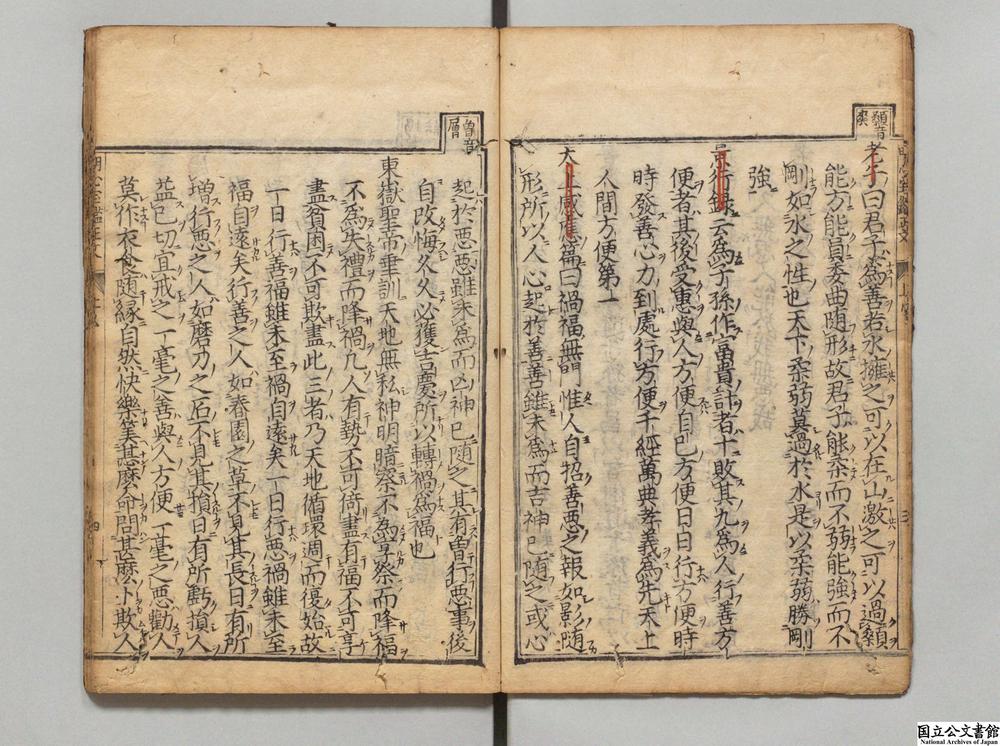 顙音
老子曰君子爲善若水擁之可以在山激之可以過顙
能方能員委曲随形故君子能柔而不弱能強而不
剛如水之性也天下柔弱莫過於水是以柔弱勝剛
強
景行録云爲子孫作冨貴計者十敗其九爲人行善方
便者其後受惠與人方便自己方便日日行方便時
時發善心力到處行方便千經萬典孝義爲先天上
人間方便第一
太上感應篇曰禍福無門惟人自招善惡之報如影随
形所以人心起於善善雖未爲而吉神已随之或心
曾音
層
起於惡惡雖未爲而凶神已随之其有曽行惡事後
自改悔久久必獲吉慶所以轉禍爲福也
東嶽聖帝垂訓天地無私神明暗察不爲享祭而降福
不爲失禮而降禍凡人有勢不可倚盡有福不可享
盡貧困不可欺盡此三者乃天地循環週而復始故
一日行善福雖未至禍自遠矣一日行惡禍雖未至
福自遠矣行善之人如春園之草不見其長日有所
増行惡之人如磨刀之石不見其損日有所虧損人
益己切宜戒之一毫之善與人方便一毫之惡勸人
莫作衣食随縁自然快樂筭甚麽命問甚麽卜欺人
国立公文書館
National Archives of Japan